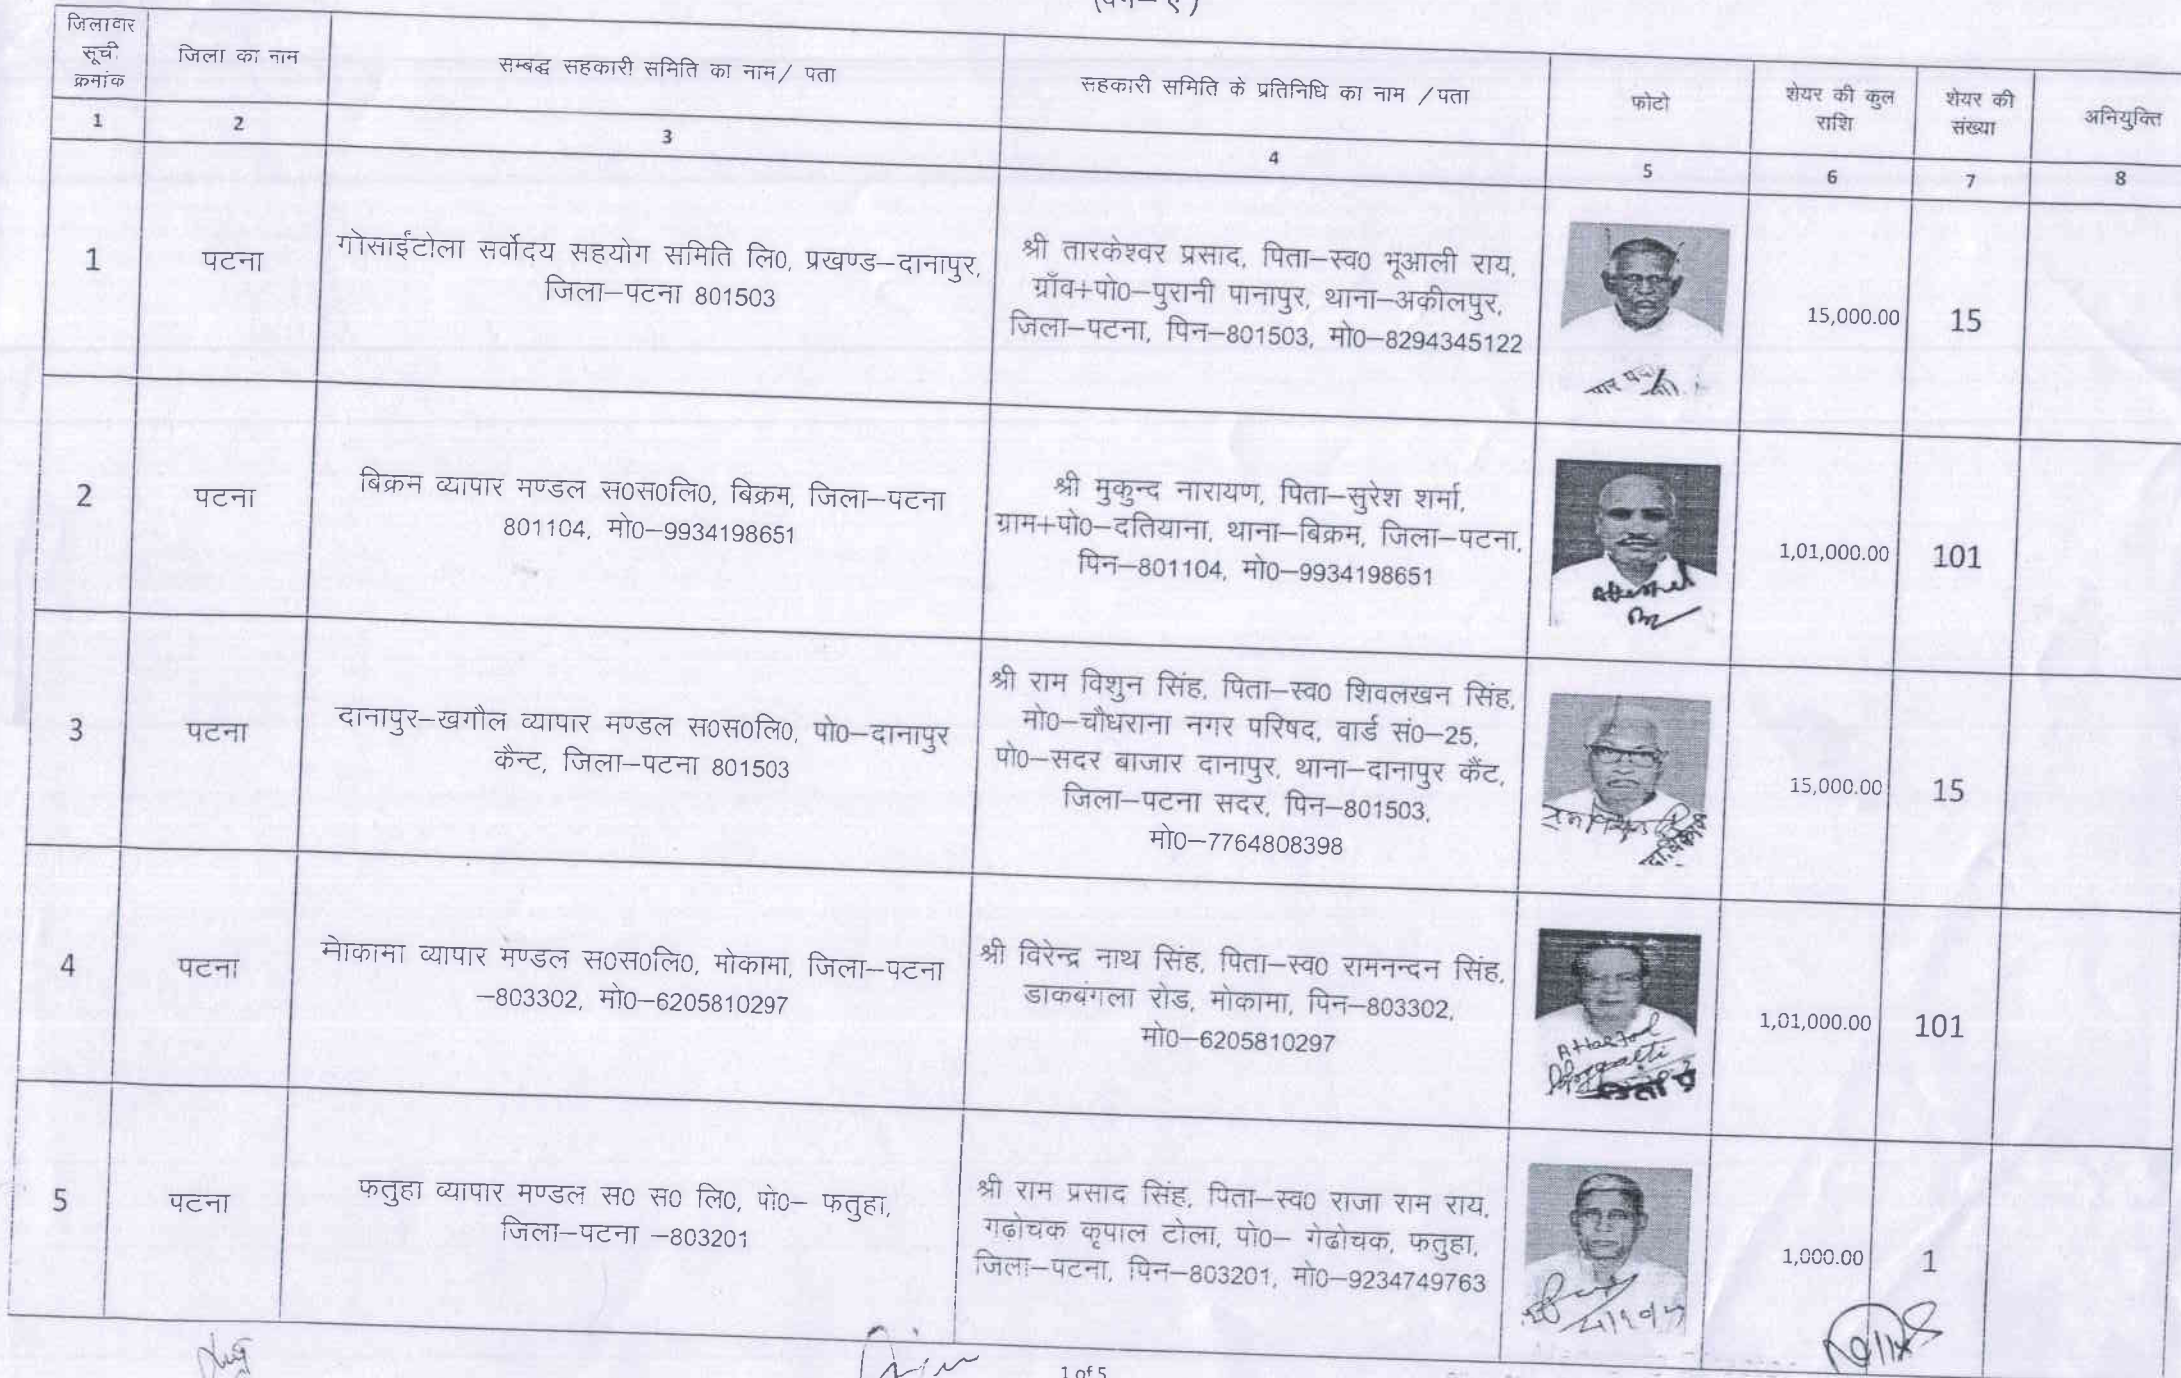 जिलावार
सूची
क्रमांक
जिला का नाम
सम्बद्ध सहकारी समिति का नाम/ पता
सहकारी समिति के प्रतिनिधि का नाम /पता
फोटो
शेयर की कुल
राशि
शेयर की
संख्या
अनियुक्ति
1
2
3
4
5
6
7
8
1
पटना
गोसाईंटोला सर्वोदय सहयोग समिति लि0, प्रखण्ड–दानापुर,
जिला–पटना 801503
श्री तारकेश्वर प्रसाद, पिता–स्व0 भूआली राय,
ग्राँव+पो0–पुरानी पानापुर, थाना–अकीलपुर,
जिला–पटना, पिन–801503, मो0–8294345122
15,000.00
15
2
पटना
बिक्रम व्यापार मण्डल स0स0लि0, बिक्रम, जिला–पटना
801104, मो0–9934198651
श्री मुकुन्द नारायण, पिता–सुरेश शर्मा,
ग्राम+पो0–दतियाना, थाना–बिक्रम, जिला–पटना,
पिन–801104, मो0–9934198651
1,01,000.00
101
3
पटना
दानापुर–खगौल व्यापार मण्डल स0स0लि0, पो0–दानापुर
कैन्ट, जिला–पटना 801503
श्री राम विशुन सिंह, पिता–स्व0 शिवलखन सिंह,
मो0–चौधराना नगर परिषद, वार्ड सं0–25,
पो0–सदर बाजार दानापुर, थाना–दानापुर कैंट,
जिला–पटना सदर, पिन–801503,
मो0–7764808398
15,000.00
15
4
पटना
मेाकामा व्यापार मण्डल स0स0लि0, मोकामा, जिला–पटना
–803302, मो0–6205810297
श्री विरेन्द्र नाथ सिंह, पिता–स्व0 रामनन्दन सिंह,
डाकबंगला रोड, मोकामा, पिन–803302,
मो0–6205810297
1,01,000.00
101
5
पटना
फतुहा व्यापार मण्डल स0 स0 लि0, पो0– फतुहा,
जिला–पटना –803201
श्री राम प्रसाद सिंह, पिता–स्व0 राजा राम राय,
गढोचक कृपाल टोला, पो0– गेढोचक, फतुहा,
जिला–पटना, पिन–803201, मो0–9234749763
1,000.00
1
1 of 5